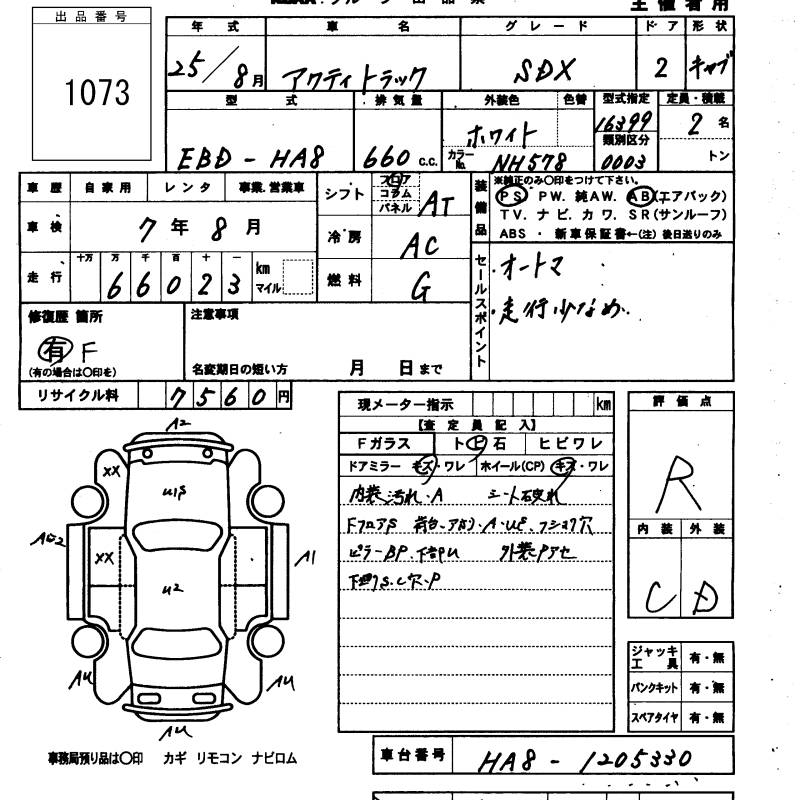 出品番号
1073
主催者用
年式 車名 グレード ドア 形状
25/8月 アクティトラック SDX 2 キャブ
型式 排気量 外装色 色替 型式指定 定員・積載
16399
ホワイト 類別区分 2名
EBD-HA8 660 c.c. カラーNo. NH578 0003 トン
車歴 自家用 レンタ 事業.営業車
車検 7年8月
走行 十万 万 千 百 十 一
66023 km マイル
シフト フロア コラム パネル AT
冷房 AC
燃料 G
装備品
※純正のみ〇印をつけて下さい。
PS PW. 純AW. AB(エアバック)
TV. ナビ. カワ. SR(サンルーフ)
ABS ・ 新車保証書←(注) 後日送りのみ
セールスポイント
・オートマ
・走行少なめ
修復歴 箇所
有 F
(有の場合は〇印を)
注意事項
名変期日の短い方 月 日まで
リサイクル料 7560円
現メーター指示 km
【査定員記入】
Fガラス トビ石 ヒビワレ
ドアミラー キズ・ワレ ホイール(CP) キズ・ワレ
内装汚れ・A シート破れ
FフロアS
ピラーBP.下部U 外装Pアセ
評価点
R
内装 外装
C D
ジャッキ工具 有・無
パンクキット 有・無
スペアタイヤ 有・無
A2
XX
U1S
XX
A1
U2
AU
AU
AU
事務局預り品は〇印 カギ リモコン ナビロム
車台番号 HA8-1205330